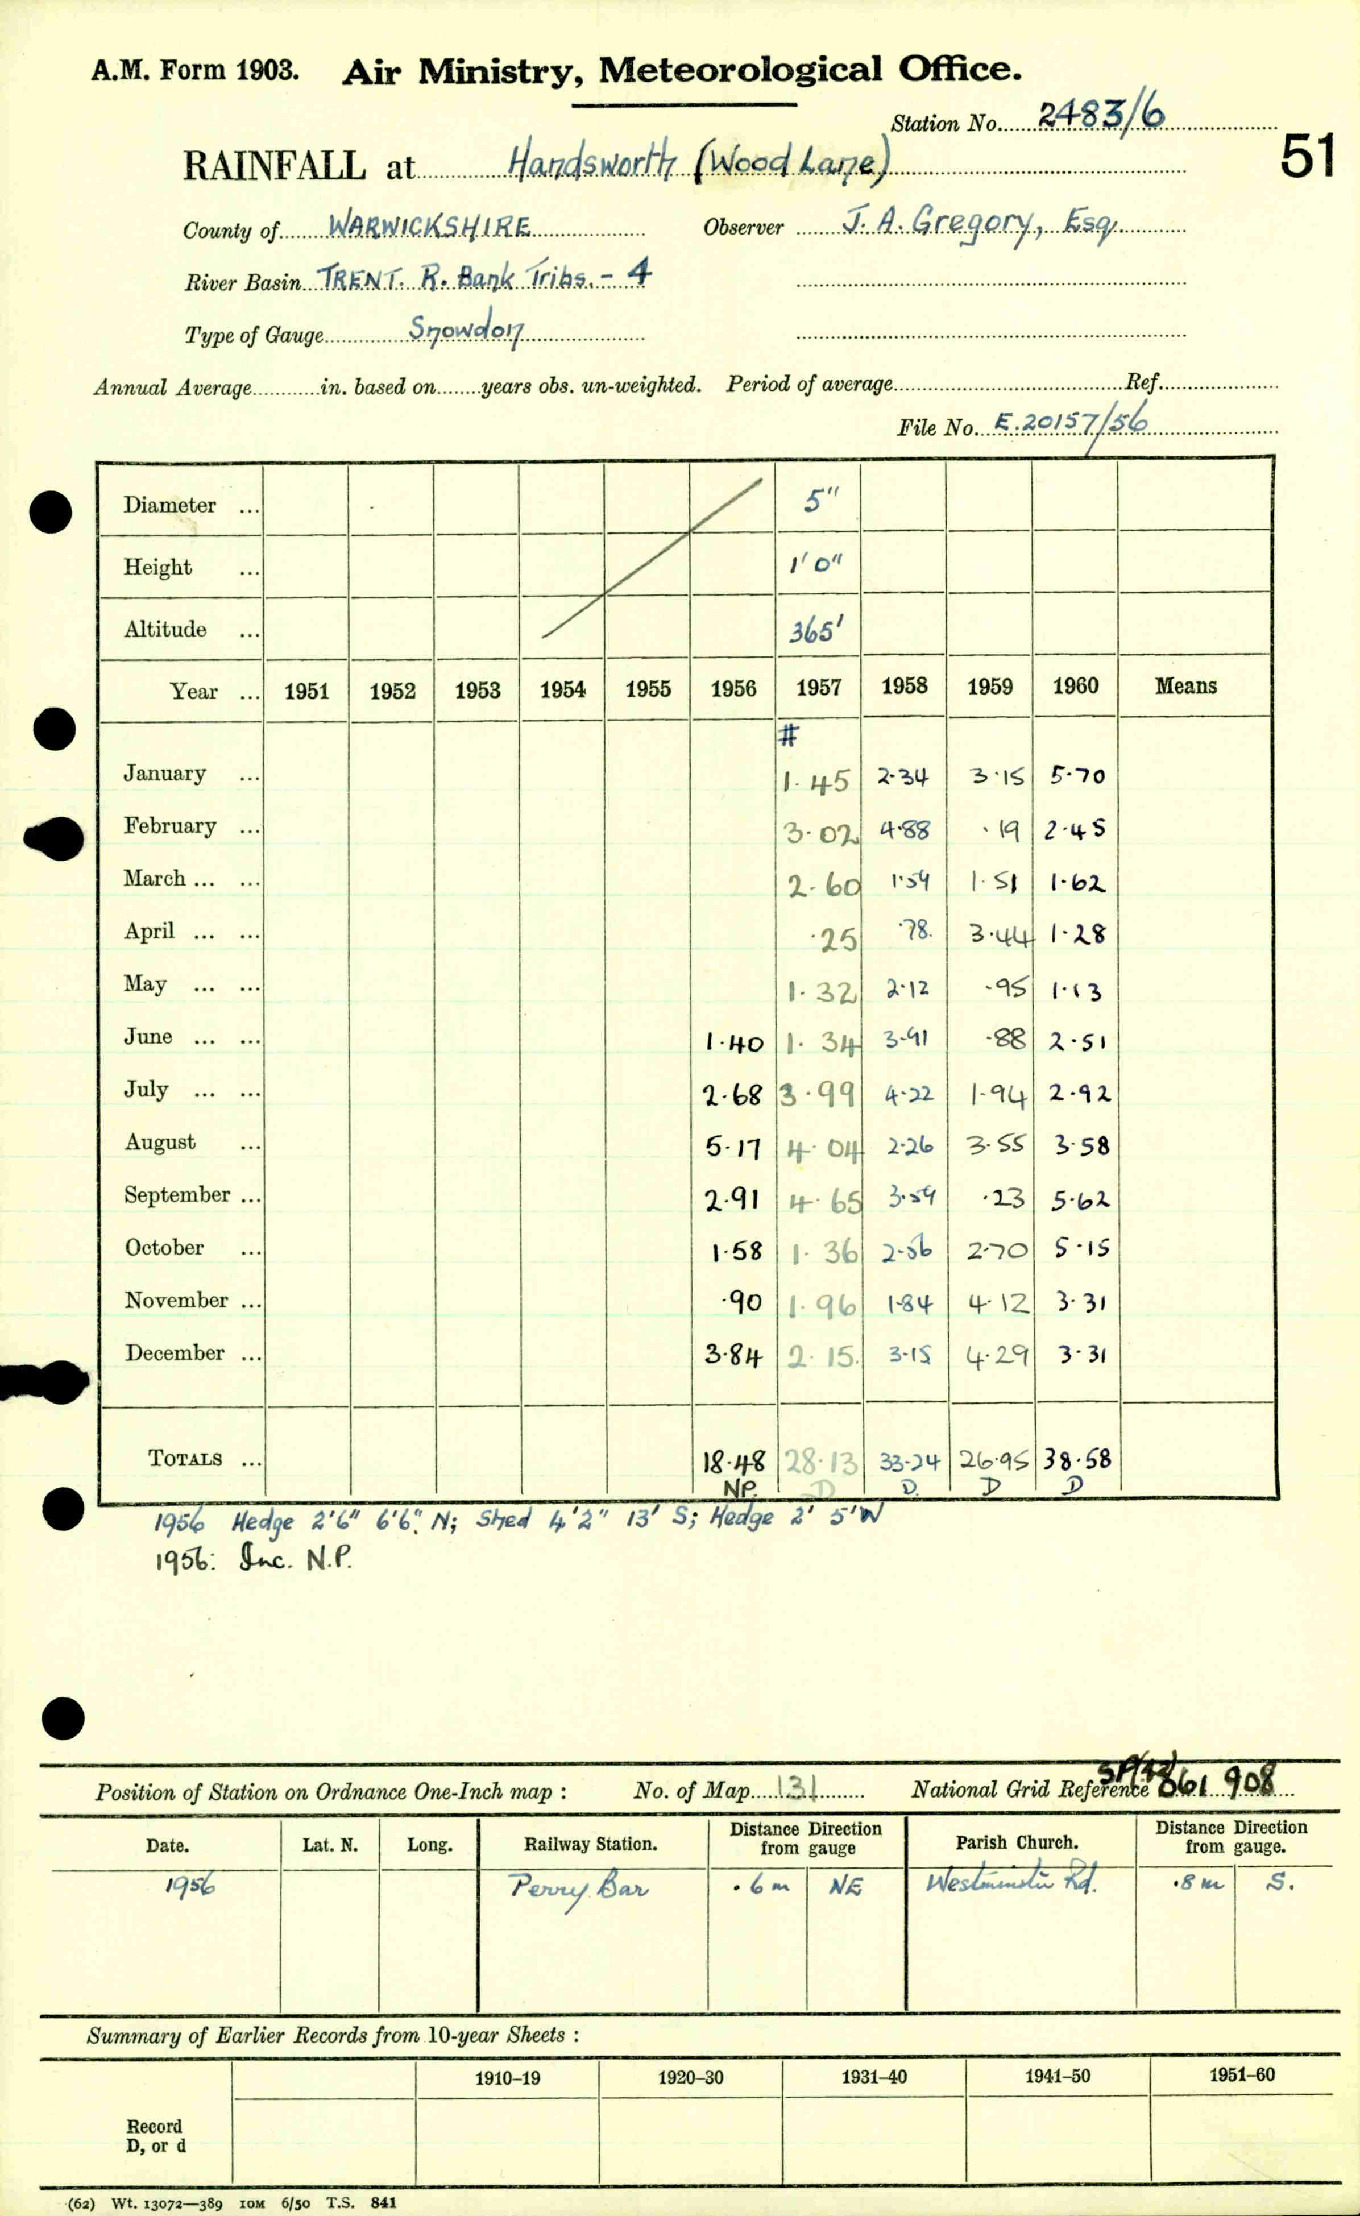 A.M. Form 1903. Air Ministry, Meteorological Office.
Station No. 2483/6
51
RAINFALL at Handsworth (Wood Lane)
County of WARWICKSHIRE Observer J. A. Gregory, Esq.
River Basin TRENT. R. Bank Tribs. - 4
Type of Gauge Snowdon
Annual Average in. based on years obs. un-weighted. Period of average Ref.
File No. E.20157/56
Diameter ... 5"
Height ... 1' 0"
Altitude ... 365'
Year ... 1951 1952 1953 1954 1955 1956 1957 1958 1959 1960 Means
#
January ... 1.45 2.34 3.15 5.70
February ... 3.02 4.88 .19 2.45
March ... ... 2.60 1.59 1.51 1.62
April ... ... .25 .78 3.44 1.28
May ... ... 1.32 2.12 .95 1.13
June ... ... 1.40 1.34 3.91 .88 2.51
July ... ... 2.68 3.99 4.22 1.94 2.92
August ... 5.17 4.04 2.26 3.55 3.58
September ... 2.91 4.65 3.59 .23 5.62
October ... 1.58 1.36 2.56 2.70 5.15
November ... .90 1.96 1.84 4.12 3.31
December ... 3.84 2.15 3.15 4.29 3.31
TOTALS ... 18.48 28.13 33.24 26.95 38.58
NP. D D. D D
1956 Hedge 2'6" 6'6" N; Shed 4'2" 13' S; Hedge 2' 5'W
1956: Inc. N.P.
Position of Station on Ordnance One-Inch map : No. of Map 131 National Grid Reference 061 908
Date. Lat. N. Long. Railway Station. Distance from gauge Direction Parish Church. Distance from gauge. Direction
1956 Perry Bar .6 m NE Westminster Rd. .8 m S.
Summary of Earlier Records from 10-year Sheets :
1910–19 1920–30 1931–40 1941–50 1951–60
Record
D, or d
(62) Wt. 13072—389 10M 6/50 T.S. 841